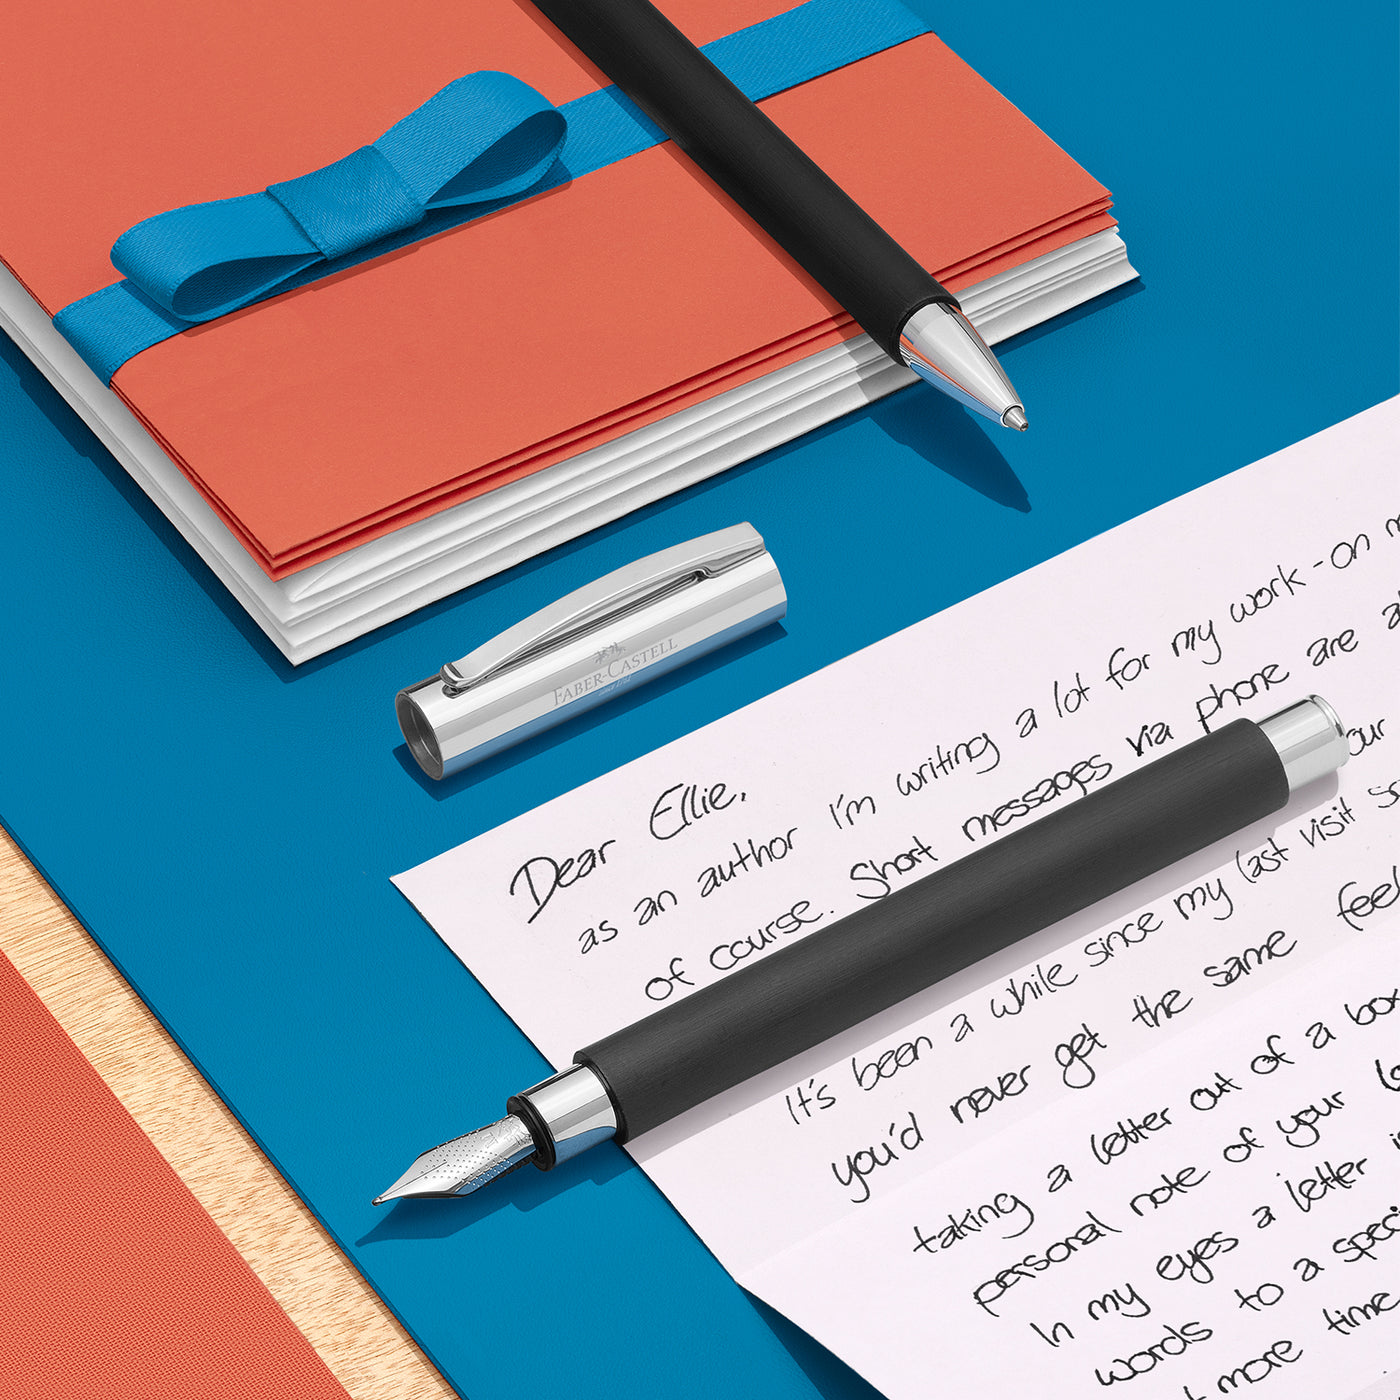 FABER-CASTELL
since 1761
Dear Ellie,
as an author I'm writing a lot for my work - on
of course. Short messages via phone are
our
It's been a while since my last visit
you'd never get the same feel
taking a letter out of a box
personal note of your
In my eyes a letter
words to a speci
more time